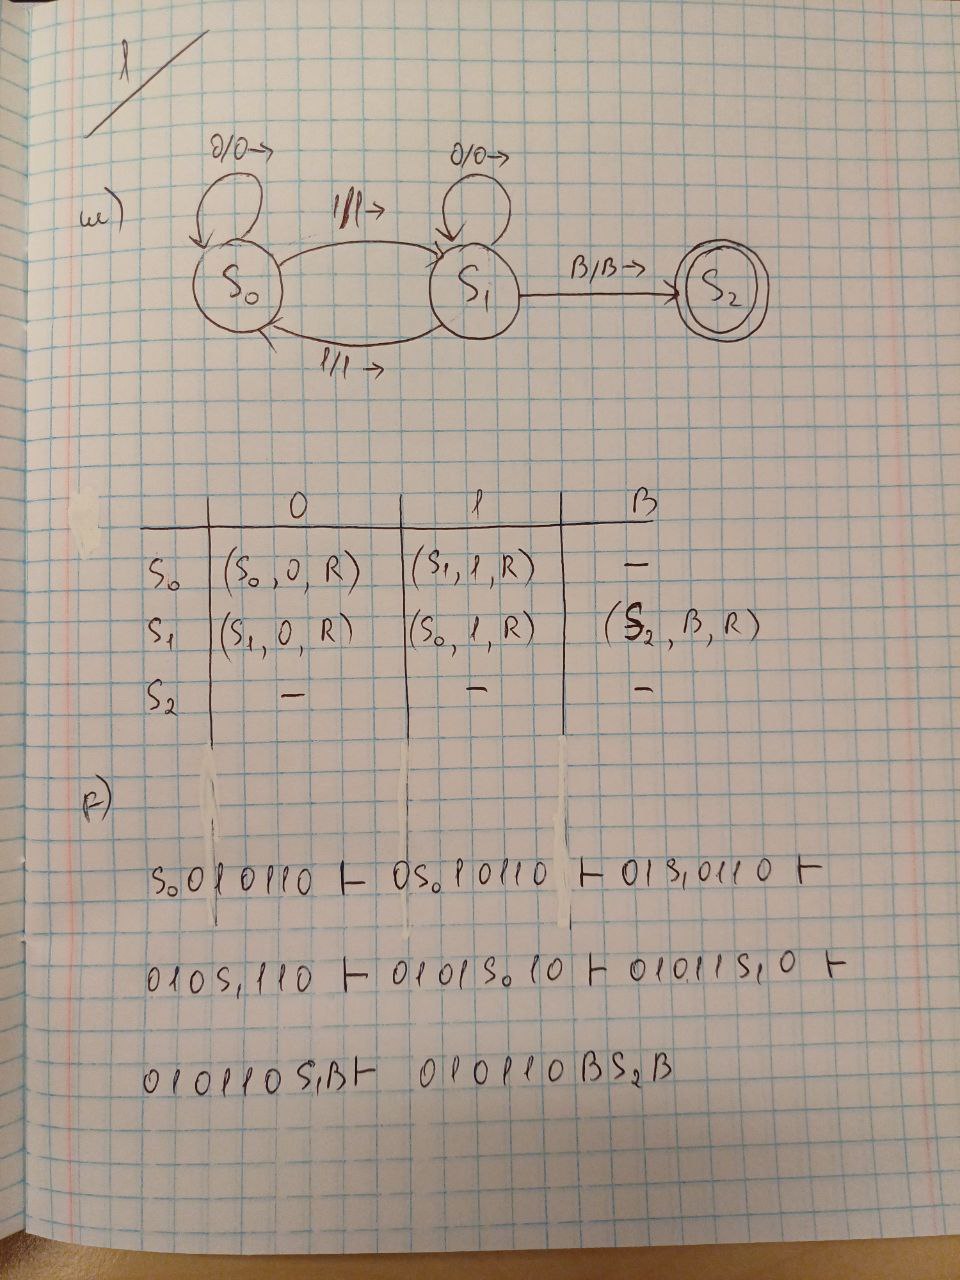 1
0/0→ 0/0→
ա) 1/1→
S₀ S₁ B/B→ S₂
1/1→
0 1 B
S₀ (S₀, 0, R) (S₁, 1, R) –
S₁ (S₁, 0, R) (S₀, 1, R) (S₂, B, R)
S₂ – – –
բ)
S₀010110 ⊢ 0S₀10110 ⊢ 01S₁0110 ⊢
010S₁110 ⊢ 0101S₀10 ⊢ 01011S₁0 ⊢
010110S₁B⊢ 010110BS₂B